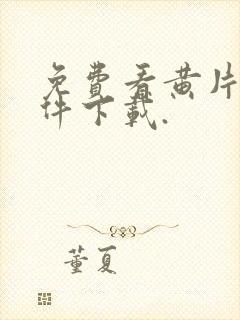 免费看黄片
件下载.
董夏